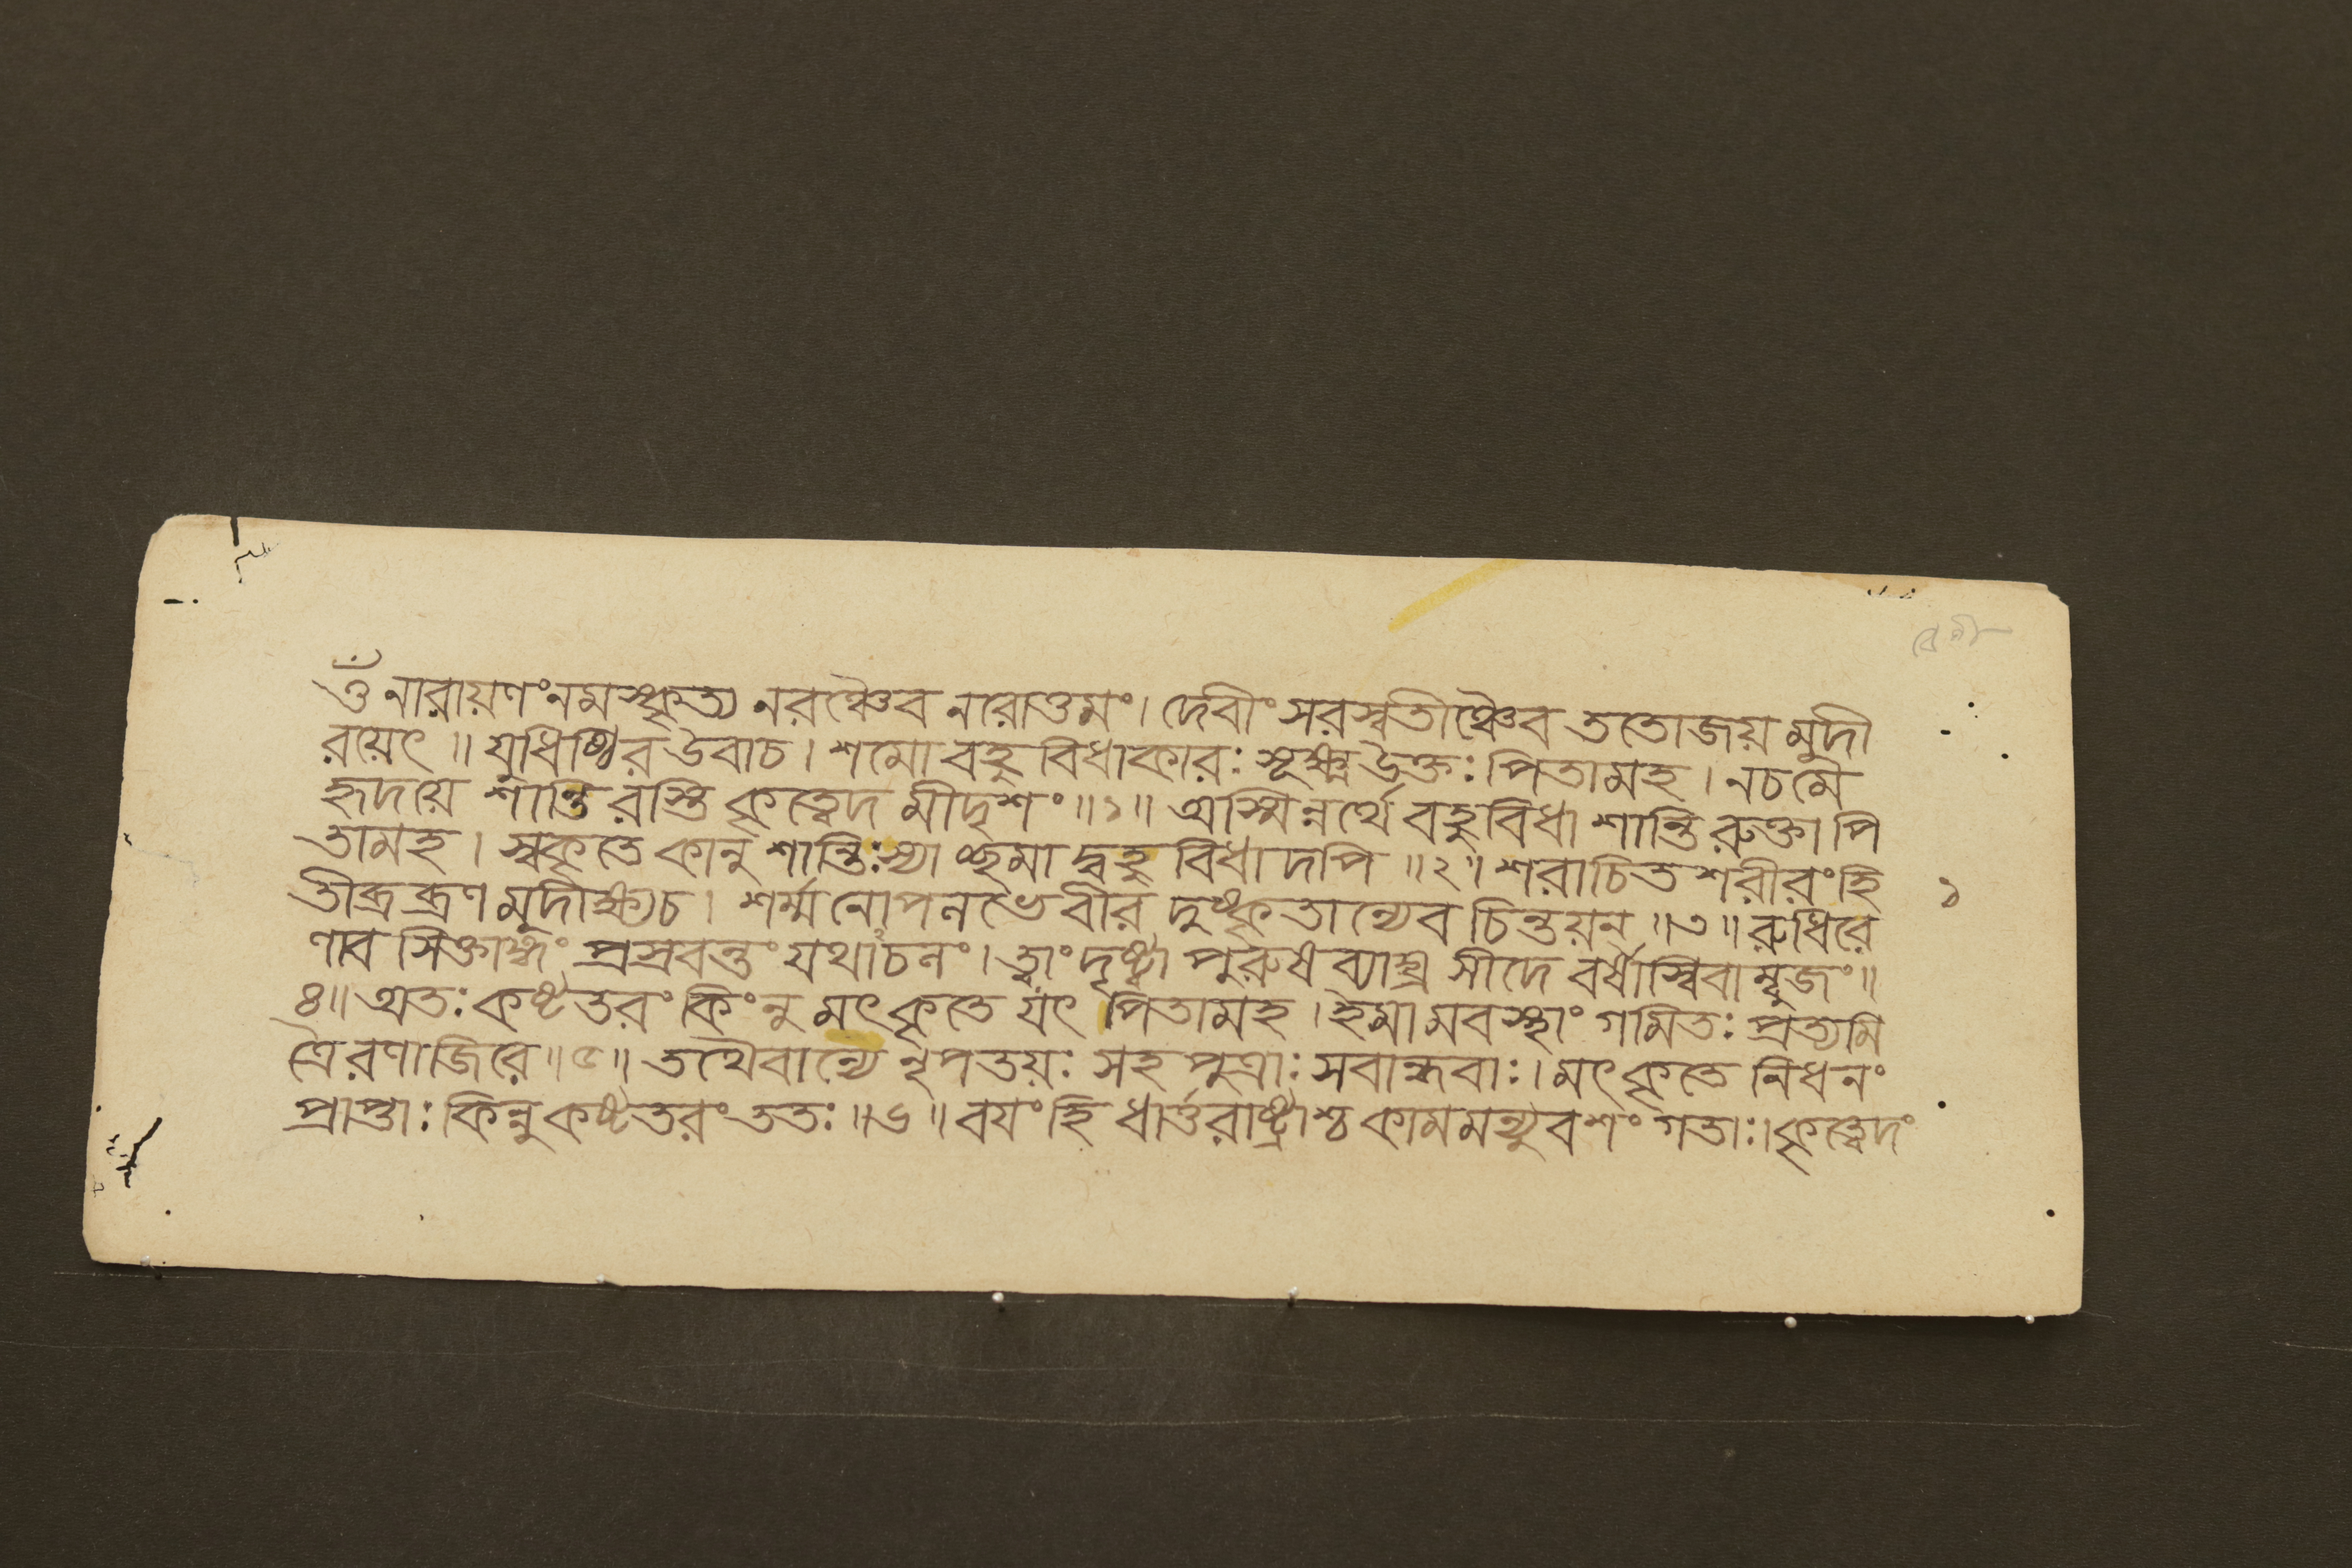 ওঁ নারায়ণং নমস্কৃত্য নরঞ্চৈব নরোত্তমং। দেবীং সরস্বতীঞ্চৈব ততোজয় মুদী
রয়েৎ ॥ যুধিষ্ঠির উবাচ। শমো বহুবিধাকারঃ সূক্ষ্ম উক্তঃ পিতামহ। নচমে
হৃদয়ে শান্তি রস্তি কৃত্বেদ মীদৃশং ॥১॥ অস্মিন্নর্থে বহুবিধা শান্তি রুক্তা পি
তামহ। স্বকৃতে কানু শান্তিঃ স্যা চ্ছমা দ্বহু বিধাদপি ॥২॥ শরাচিত শরীরং হি
তীব্রব্রণ মুদীক্ষ্য চ। শর্ম্ম নোপলভে বীর দুষ্কৃতান্যেব চিন্তয়ন ॥৩॥ রুধিরে
ণাব সিক্তাঙ্গং প্রস্রবন্তং যথাচলং। ত্বাং দৃষ্ট্বা পুরুষ ব্যাঘ্র সীদে বর্ষাস্বিবাম্বুজং॥
৪॥ অতঃ কষ্টতরং কিংনু মৎকৃতে যৎ পিতামহ। ইমামবস্থাং গমিতঃ প্রত্যমি
ত্রৈরণাজিরে ॥৫॥ তথৈবান্যে নৃপতয়ঃ সহ পুত্রাঃ সবান্ধবাঃ। মৎকৃতে নিধনং
প্রাপ্তাঃ কিন্নুকষ্টতরং ততঃ ॥৬॥ বযং হি ধার্ত্তরাষ্ট্রাশ্চ কামমন্যুবশং গতাঃ। কৃত্বেদং
১